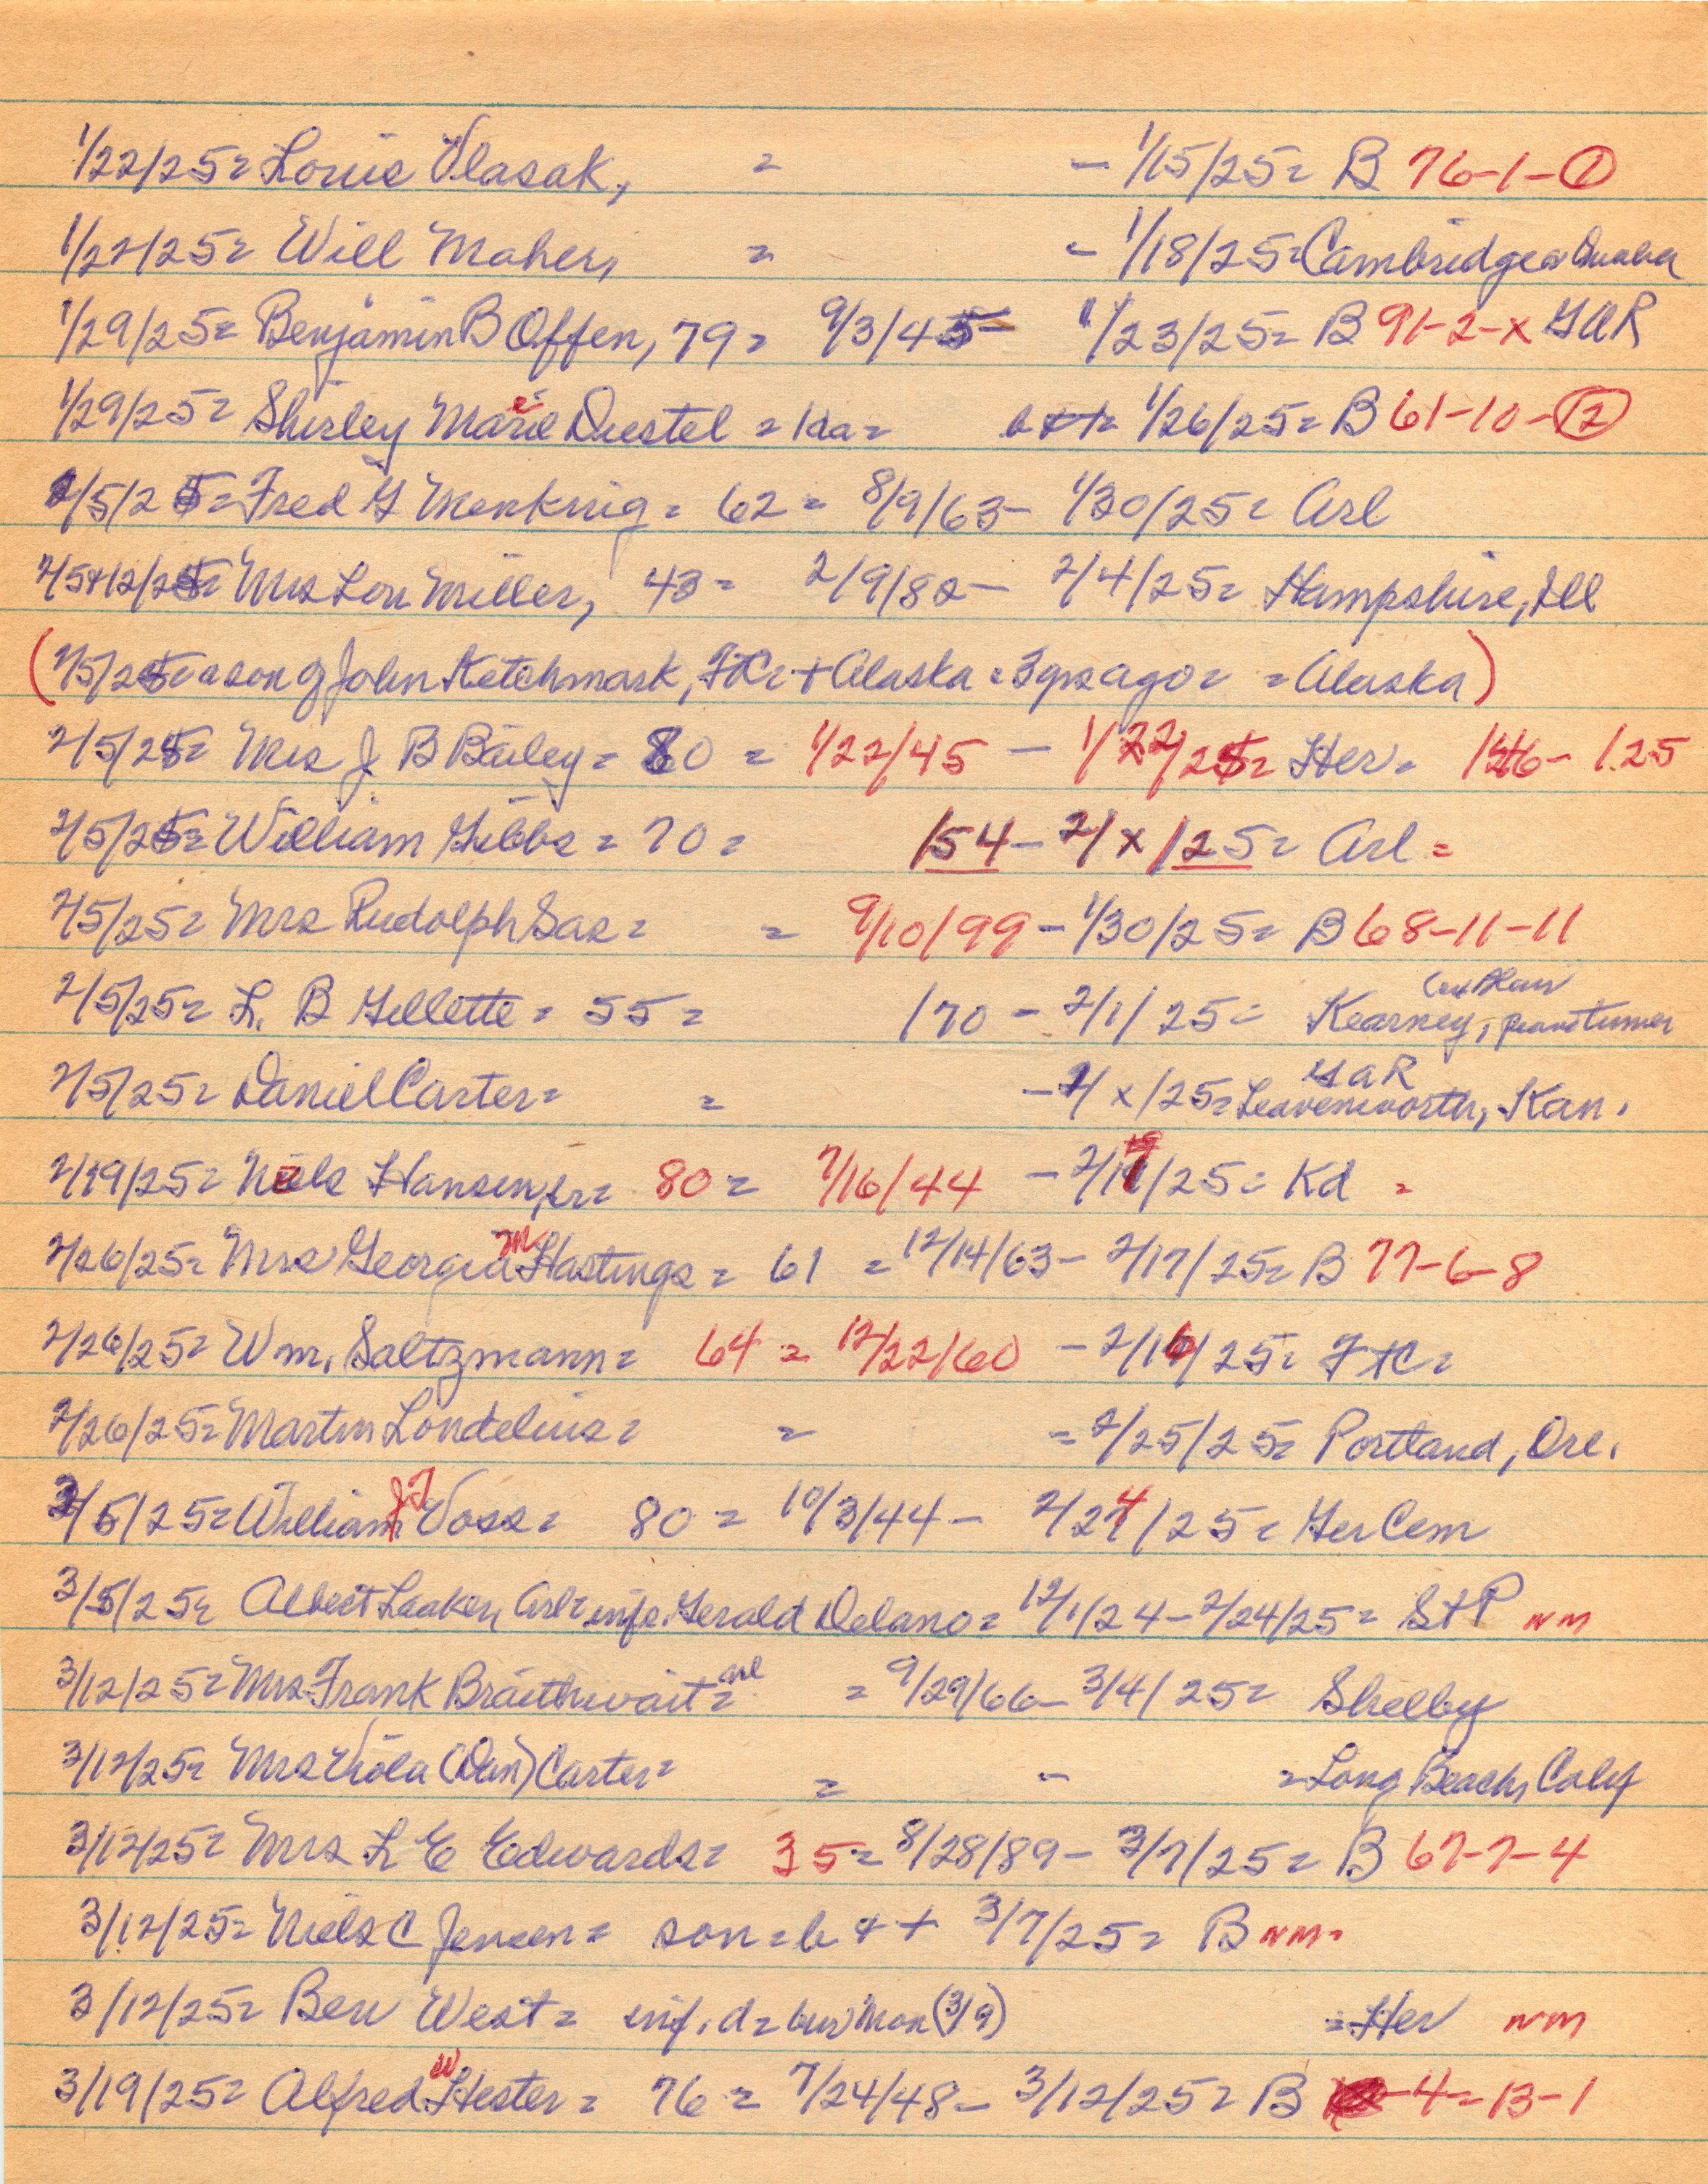 1/22/25= Louis Vlasak, = - 1/15/25= B 76-1-①
1/22/25= Will Maher, = - 1/18/25= Cambridge or Omaha
1/29/25= Benjamin B Offen, 79= 9/3/45- 1/23/25= B 91-2-x GAR
1/29/25= Shirley Marie Diestel = 1da= b++= 1/26/25= B 61-10-⑫
2/5/25= Fred G Menknig = 62= 8/9/63- 1/30/25= Arl
2/5+12/25= Mrs Lon Miller, 43= 2/9/82- 2/4/25= Hampshire, Ill
(2/5/25= a son of John Ketchmark, FtC + Alaska = 3yrs ago= = Alaska)
2/5/25= Mrs J B Bailey= 80 = 1/22/45 - 1/22/25= Her= 146- 1.25
2/5/25= William Gibbs = 70= /54- 2/x/25= Arl =
2/5/25= Mrs Rudolph Sas= = 9/10/99- 1/30/25= B 68-11-11
2/5/25= L. B Gillette= 55= /70 - 2/1/25= Kearney, piano tuner
2/5/25= Daniel Carter= = - 2/x/25= Leavenworth, Kan. GAR
2/19/25= Niels Hansen, sr= 80= 7/16/44 - 2/17/25= Kd =
2/26/25= Mrs Georgia M Hastings= 61 = 12/14/63- 2/17/25= B 77-6-8
2/26/25= Wm. Saltzmann= 64 = 12/22/60 - 2/16/25= FtC=
2/26/25= Martin Londelius= = = 2/25/25= Portland, Ore.
3/5/25= William J Voss= 80= 10/3/44- 2/24/25= Ger Cem
3/5/25= Albert Laaker, Arl= inf= Gerald Delano= 12/1/24- 2/24/25= St P nm
3/12/25= Mrs Frank Braithwait= Arl = 9/29/66- 3/4/25= Shelby
3/12/25= Mrs Viola (Dan) Carter= = - = Long Beach, Calif
3/12/25= Mrs L E Edwards= 35= 8/28/89- 3/7/25= B 67-7-4
3/12/25= Niels C Jensen= son= b++ 3/7/25= B nm=
3/12/25= Ben West= inf. d= bur Mon (3/9) = Her nm
3/19/25= Alfred W Hester= 76= 7/24/48- 3/12/25= B -4=13-1